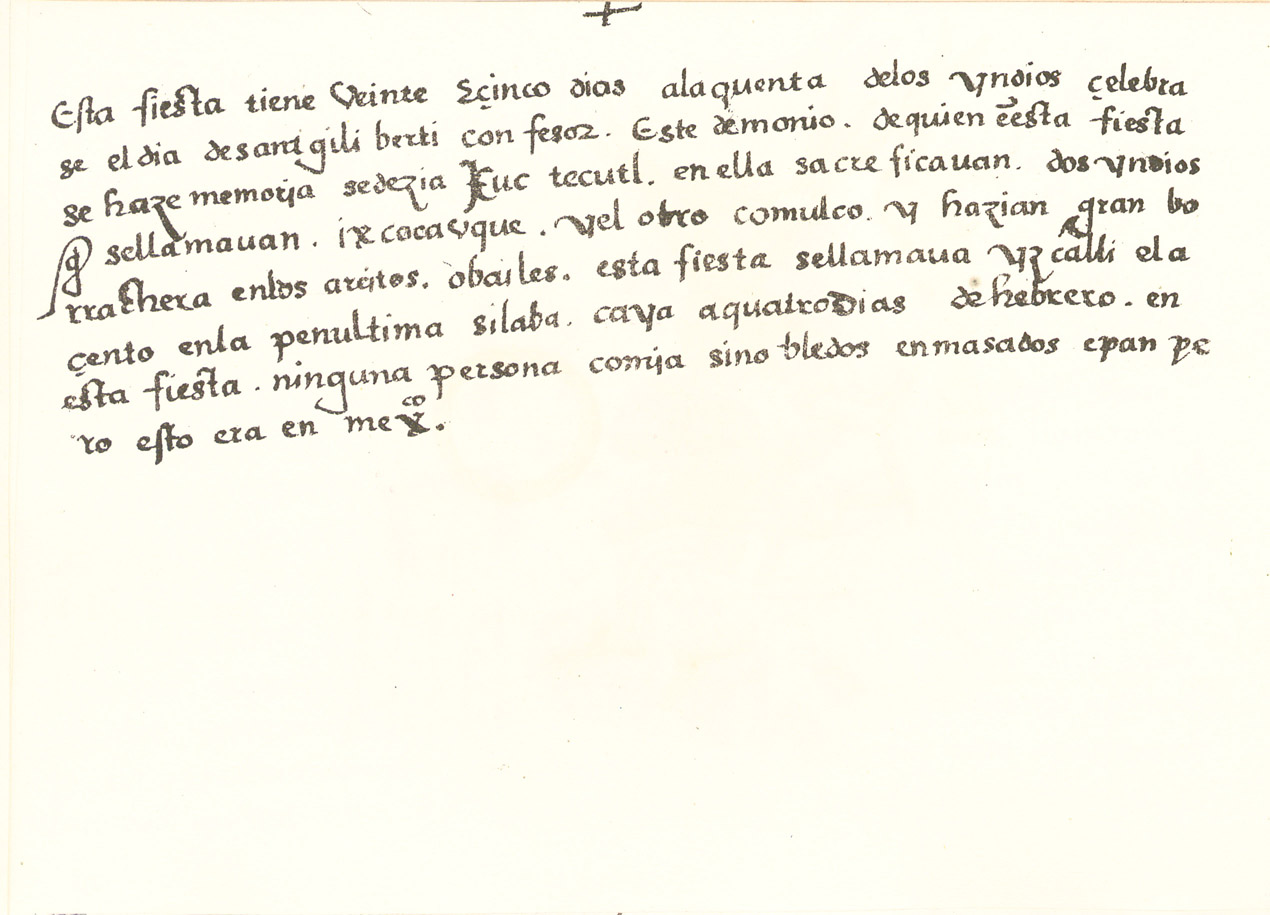 Esta fiesta tiene Veinte y çinco dias ala quenta delos yndios çelebra
se el dia de sant gili berti con fesor. Este demonio. de quien eesta fiesta
se haze memoria se dezia Xuc tecutl. en ella sacre ficauan. dos yndios
q̄ sellamauan. ixcocavque. y el otro comulco. y hazian gran bo
rrachera enlos areitos. o bailes. esta fiesta sellamaua yzcalli el a
çento enla penultima silaba. caya a quatro Dias de hebrero. en
esta fiesta. ninguna persona comja sino bledos enmasados e pan pe
ro esto era en mexco.